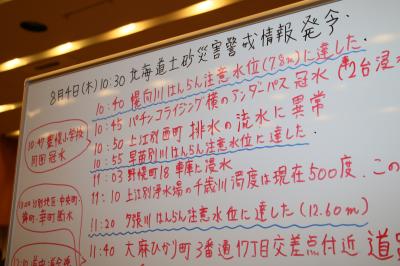 8月4日(木)10:30 北海道土砂災害警戒情報発令.
10:40 幌向川はんらん注意水位(7.8m)に達した.
10:45 パチンコライジング横のアンダーパス冠水(車2台浸水
10:50 上江別西町 排水の流水に異常
10:55 早苗別川はんらん注意水位に達した.
11:03 野幌町18 車庫に浸水
11:10 上江別浄水場の千歳川濁度は現在500度. この
11:20 夕張川はんらん注意水位に達した(12.60m)
11:40 大麻ひかり町3番通17丁目交差点付近 道路
10:47 豊幌小学校
周囲冠水
幸町断水